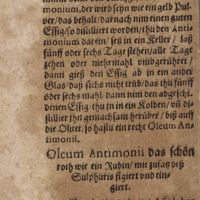 monium, der wird seyn wie ein gelb Pul-
ver/ das behalt/ darnach nim einen guten
Essig/ so distilliert worden/ thu den Anti-
monium darein/ setz in ein Keller/ laß
fünff oder sechs Tage stehen/ alle Tage
zehen oder mehrmahl umbgerührt/
dann gieß den Essig ab in ein ander
Glas/ daß sichs nicht trüb/ das thu fünff
oder sechs mahl/ dann nim den abgeschi
denen Essig thu jn in ein Kolben/ vñ di-
stillier jhn gemachsam herüber/ biß auff
die Blutt, so hastu ein recht Oleum An-
timonii.
Oleum Antimonii das schön
roth wie ein Rubin/ mit zusatz deß
Sulphuris figiert und tin-
giert.